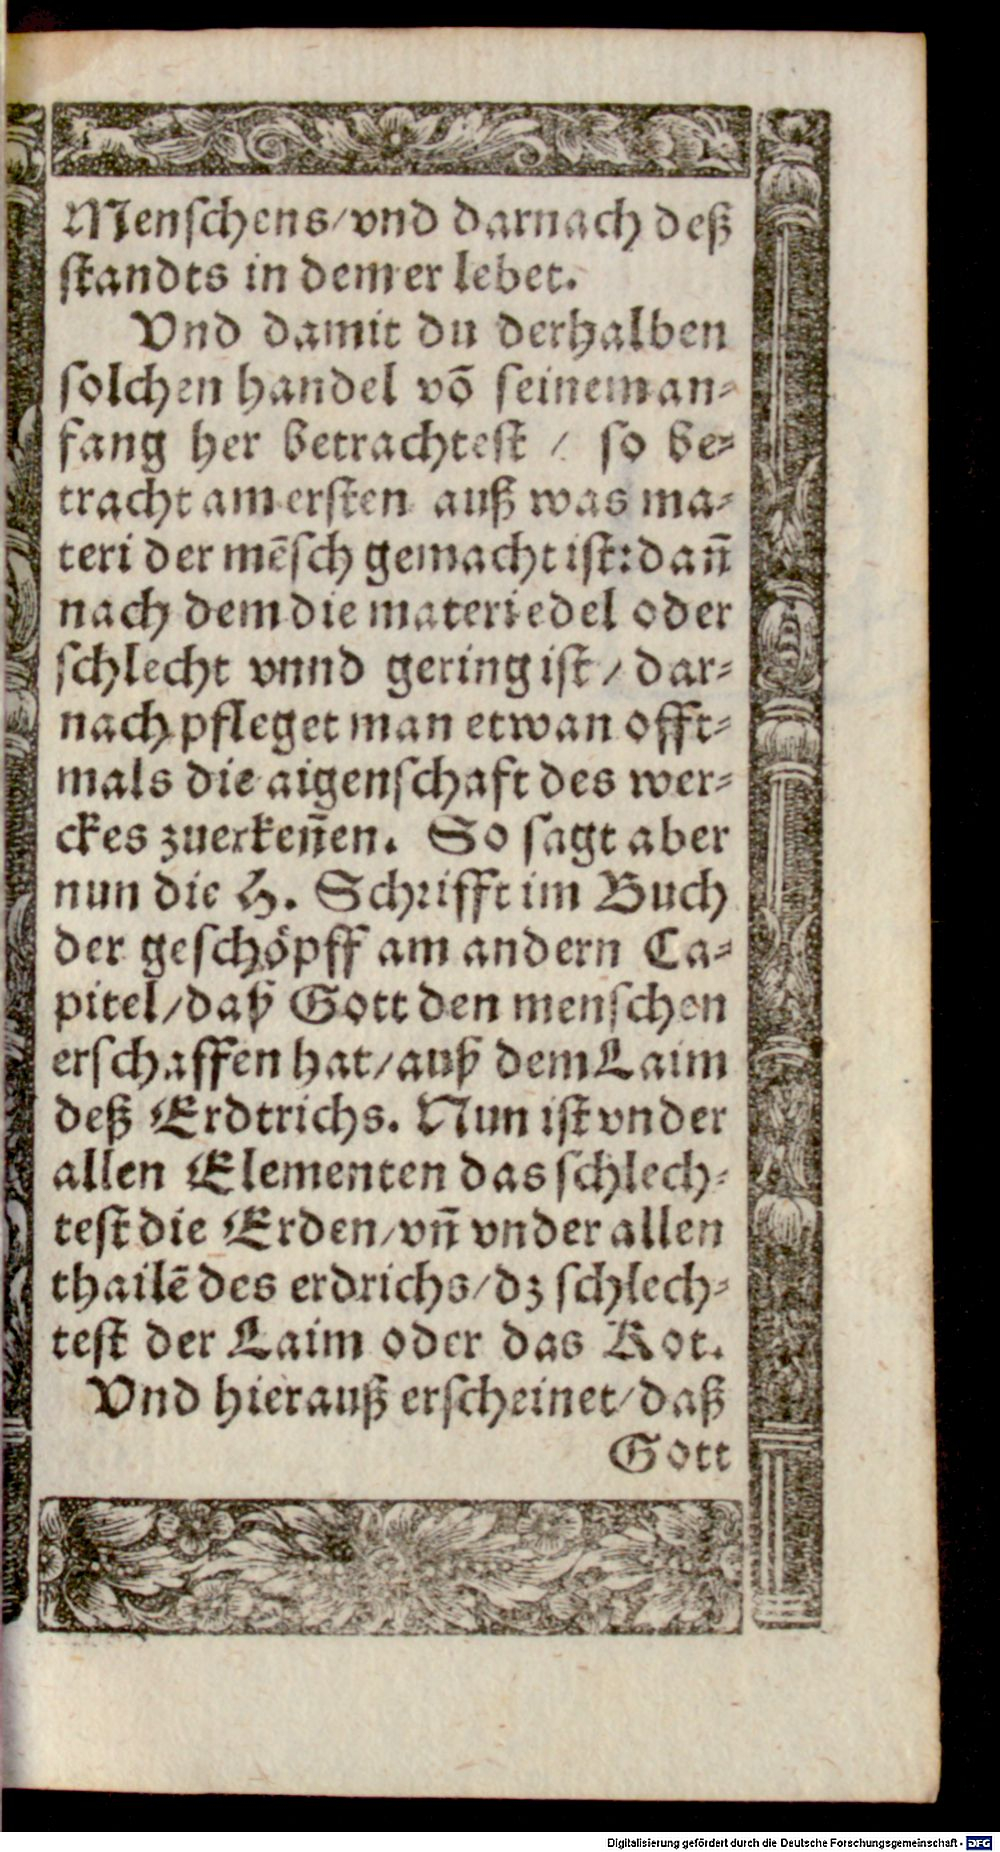 Menschens/vnd darnach deß
standts in dem er lebet.
Vnd damit du derhalben
solchen handel võ seinem an-
fang her betrachtest / so be-
tracht am ersten auß was ma-
teri der mẽsch gemacht ist: dañ
nach dem die materi edel oder
schlecht vnnd gering ist / dar-
nach pfleget man etwan offt-
mals die aigenschaft des wer-
ckes zuerkeñen. So sagt aber
nun die H. Schrifft im Buch
der geschöpff am andern Ca-
pitel/daß Gott den menschen
erschaffen hat/auß dem Laim
deß Erdtrichs. Nun ist vnder
allen Elementen das schlech-
test die Erden/vñ vnder allen
thailẽ des erdrichs/dz schlech-
test der Laim oder das Kot.
Vnd hierauß erscheinet/daß
Gott
Digitalisierung gefördert durch die Deutsche Forschungsgemeinschaft - DFG